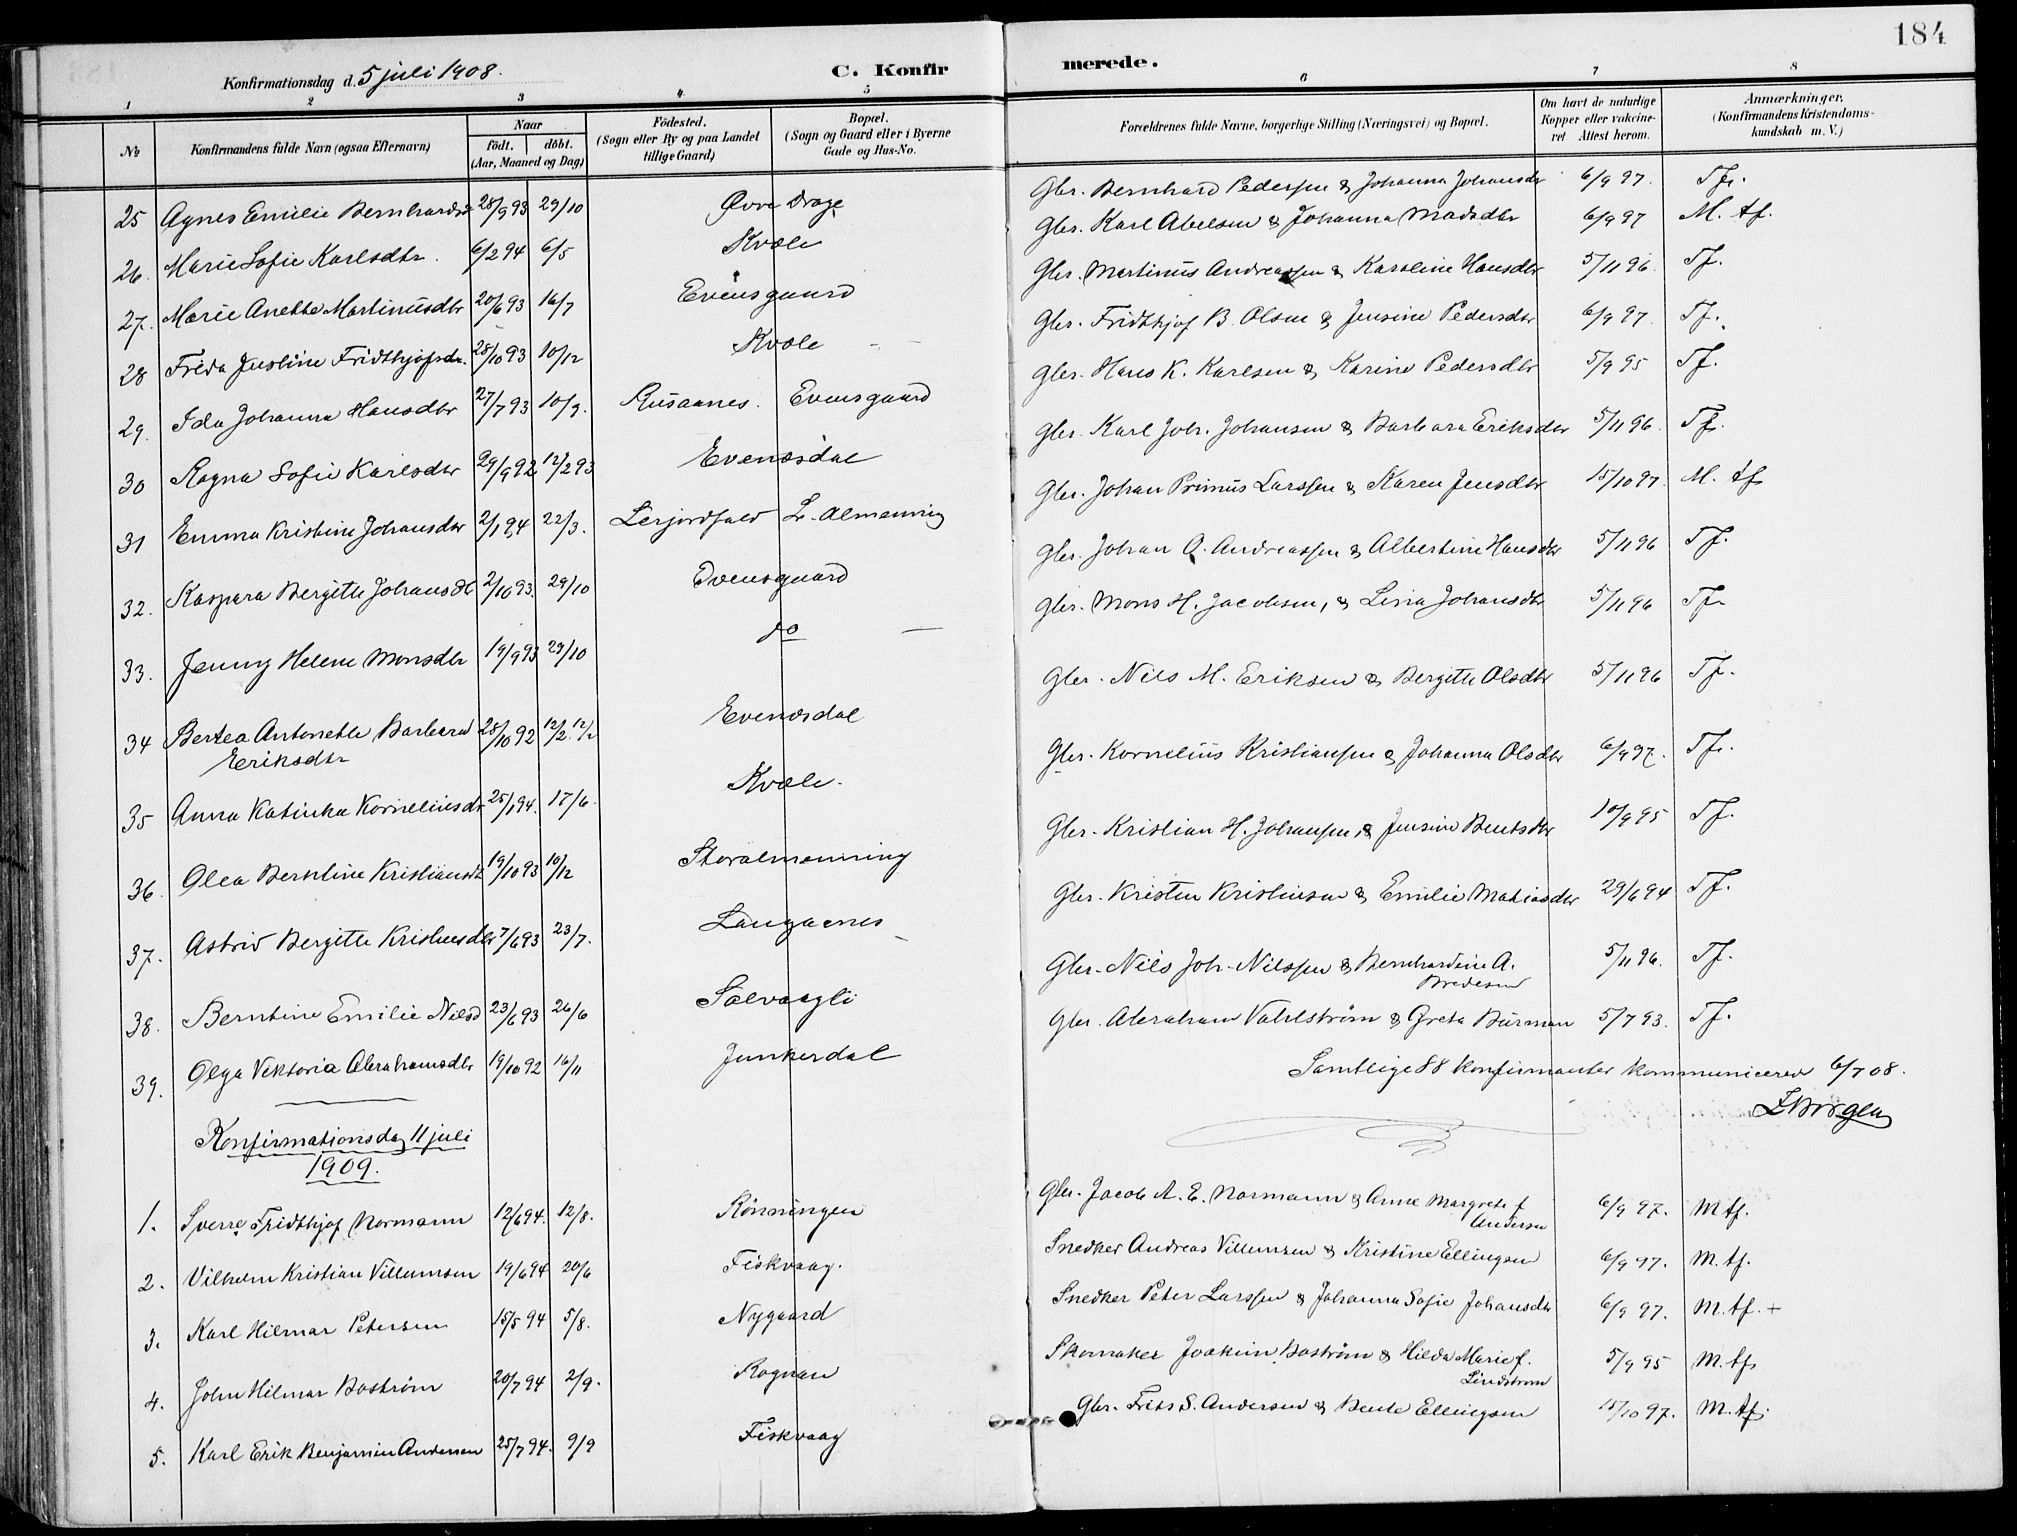 184
Konfirmationsdag d. 5 juli 1908.
C. Konfirmerede.
1 2 3 4 5 6 7 8
No
Konfirmandens fulde Navn (ogsaa Efternavn)
Naar
födt. döbt.
(Aar, Maaned og Dag)
Födested.
(Sogn eller By og paa Landet
tillige Gaard)
Bopæl.
(Sogn og Gaard eller i Byerne
Gade og Hus-No.
Forældrenes fulde Navne, borgerlige Stilling (Næringsvei) og Bopæl.
Om havt de naturlige
Kopper eller vakcine-
ret Attest herom.
Anmærkninger.
(Konfirmandens Kristendoms-
kundskab m. V.)
25 Agnes Emilie Bernhardsd 28/9 93 29/10 Øvre Drage Gbr. Bernhard Pedersen & Johanna Johansdtr 6/9 97. Tf.
26. Marie Sofie Karlsdtr. 6/2 94 6/5 Kvæle Gbr. Karl Abelsen & Johanna Madsdtr 6/9 97 M. tf.
27. Marie Anette Martinusdtr 20/6 93 16/7 Evensgaard Gbr. Martinus Andreassen & Karoline Hansdtr 5/11 96. Tf.
28 Frida Justine Fridthjofsdr. 25/10 93 10/12 Kvæle Gbr. Fridthjof B. Olsen & Jensine Pedersdtr 6/9 97. Tf.
29. Ida Johanna Hansdtr 27/7 93 10/9. Rusaanes. Evensgaard Gbr. Hans K. Karlsen & Karine Pedersdtr 5/9 95 Tf.
30 Ragna Sofie Karlsdtr 29/9 92 12/2 93 Evenesdal Gbr. Karl Joh. Johansen & Barbara Eriksdtr 5/11 96. Tf.
31 Emma Kristine Johansdtr 2/1 94 22/3. Lerjordfald L. Almenning Gbr. Johan Primus Larssen & Karen Jensdtr 15/10 97. M. tf
32. Kaspara Bergitte Johansdt 2/10 93. 29/10 Evensgaard Gbr. Johan O. Andreassen & Albertine Hansdtr 5/11 96 Tf.
33. Jenny Helene Monsdtr 19/9 93 29/10 do Gbr. Mons H. Jacobsen, & Lina Johansdtr 5/11 96 Tf
34 Bertea Antonette Barbara 28/10 92 12/2 Evenesdal Gbr. Nils M. Eriksen & Bergitte Olsdtr 5/11 96 Tf.
Eriksdtr
35 Anna Katinka Korneliusdr 25/1 94. 17/6. Kvæle. Gbr. Kornelius Kristiansen & Johanna Olsdtr 6/9 97. Tf.
36. Olea Berntine Kristiansdt 19/10 93 10/12 Storalmenning Gbr. Kristian H. Johansen, & Jensine Bentsdtr 10/9 95 Tf.
37. Astrid Bergitte Kristensdtr 7/6 93 23/7. Langaenes Gbr. Kristen Kristensen & Emilie Matiasdtr 29/6 94 Tf.
38. Berntine Emilie Nilsd 23/6 93 26/6 Solvaagli Gbr. Nils Joh. Nilssen & Bernhardine A. 5/11 96. Tf.
Bredesen
39. Olga Viktoria Abrahamsdtr 19/10 92 16/11 Junkerdal Gbr. Abraham Vahlström & Greta Burman 5/7 93. Tf.
Samtlige 88 Konfirmanter kommunicered 6/7 08.
Konfirmationsdag 11 juli
1909.
1. Sverre Fridthjof Normann 12/6 94. 12/8. Rönningen Gbr. Jacob A. E. Normann & Anne Margrete f. 6/9 97. M tf.
Andersen
2. Vilhelm Kristian Villumsen 19/6 94 20/6 Fiskvaag. Snedker Andreas Villumsen & Kristine Ellingsen 6/9 97. M. tf.
3. Karl Hilmar Petersen 15/5 94 5/8. Nygaard Snedker Peter Larssen & Johanna Sofie Johansdtr 6/9 97. M. tf. +
4. John Hilmar Boström 20/7 94 2/9. Rognan Skomaker Joakim Boström & Hilda Marie f. 5/9 95 M. tf.
Lindström
5. Karl Erik Benjamin Andersen 25/7 94. 9/9 Fiskvaag Gbr. Frits S. Andersen & Bente Ellingsen 15/10 97. M. tf.